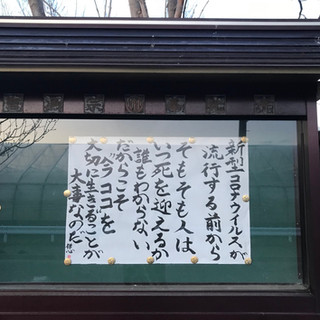 新型コロナウイルスが
流行する前から
そもそも人は
いつ死を迎えるか
誰もわからない
だからこそ
〝ベラココ〟を
大切に生きることが
大事なのだ